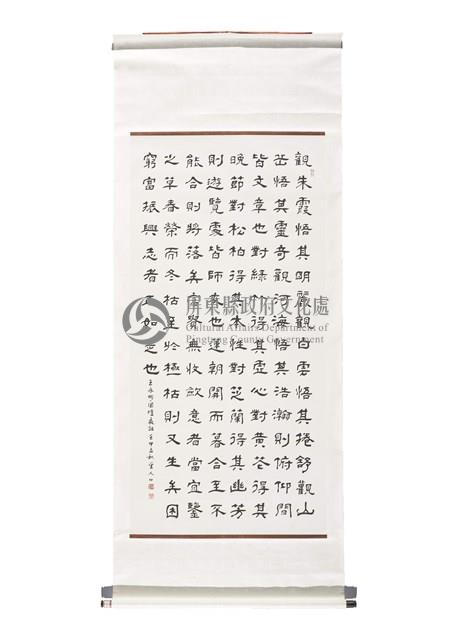 觀朱霞悟其明麗觀白雲悟其捲舒觀山
岳悟其靈奇觀河海悟其浩瀚則俯仰間
皆文章也對綠竹得其虛心對黃花得其
晚節對松柏得其本性對芝蘭得其幽芳
則遊覽處皆師友也蓮朝開而暮合至不
能合則將落矣富貴無收斂意者當宜鑒
之草春榮而冬枯至於極枯則又生矣困
窮富振興志者亦如是也
王永彬圍爐夜話壬申孟秋
屏東縣政府文化處
Cultural Affairs Department of
Pingtung County Government